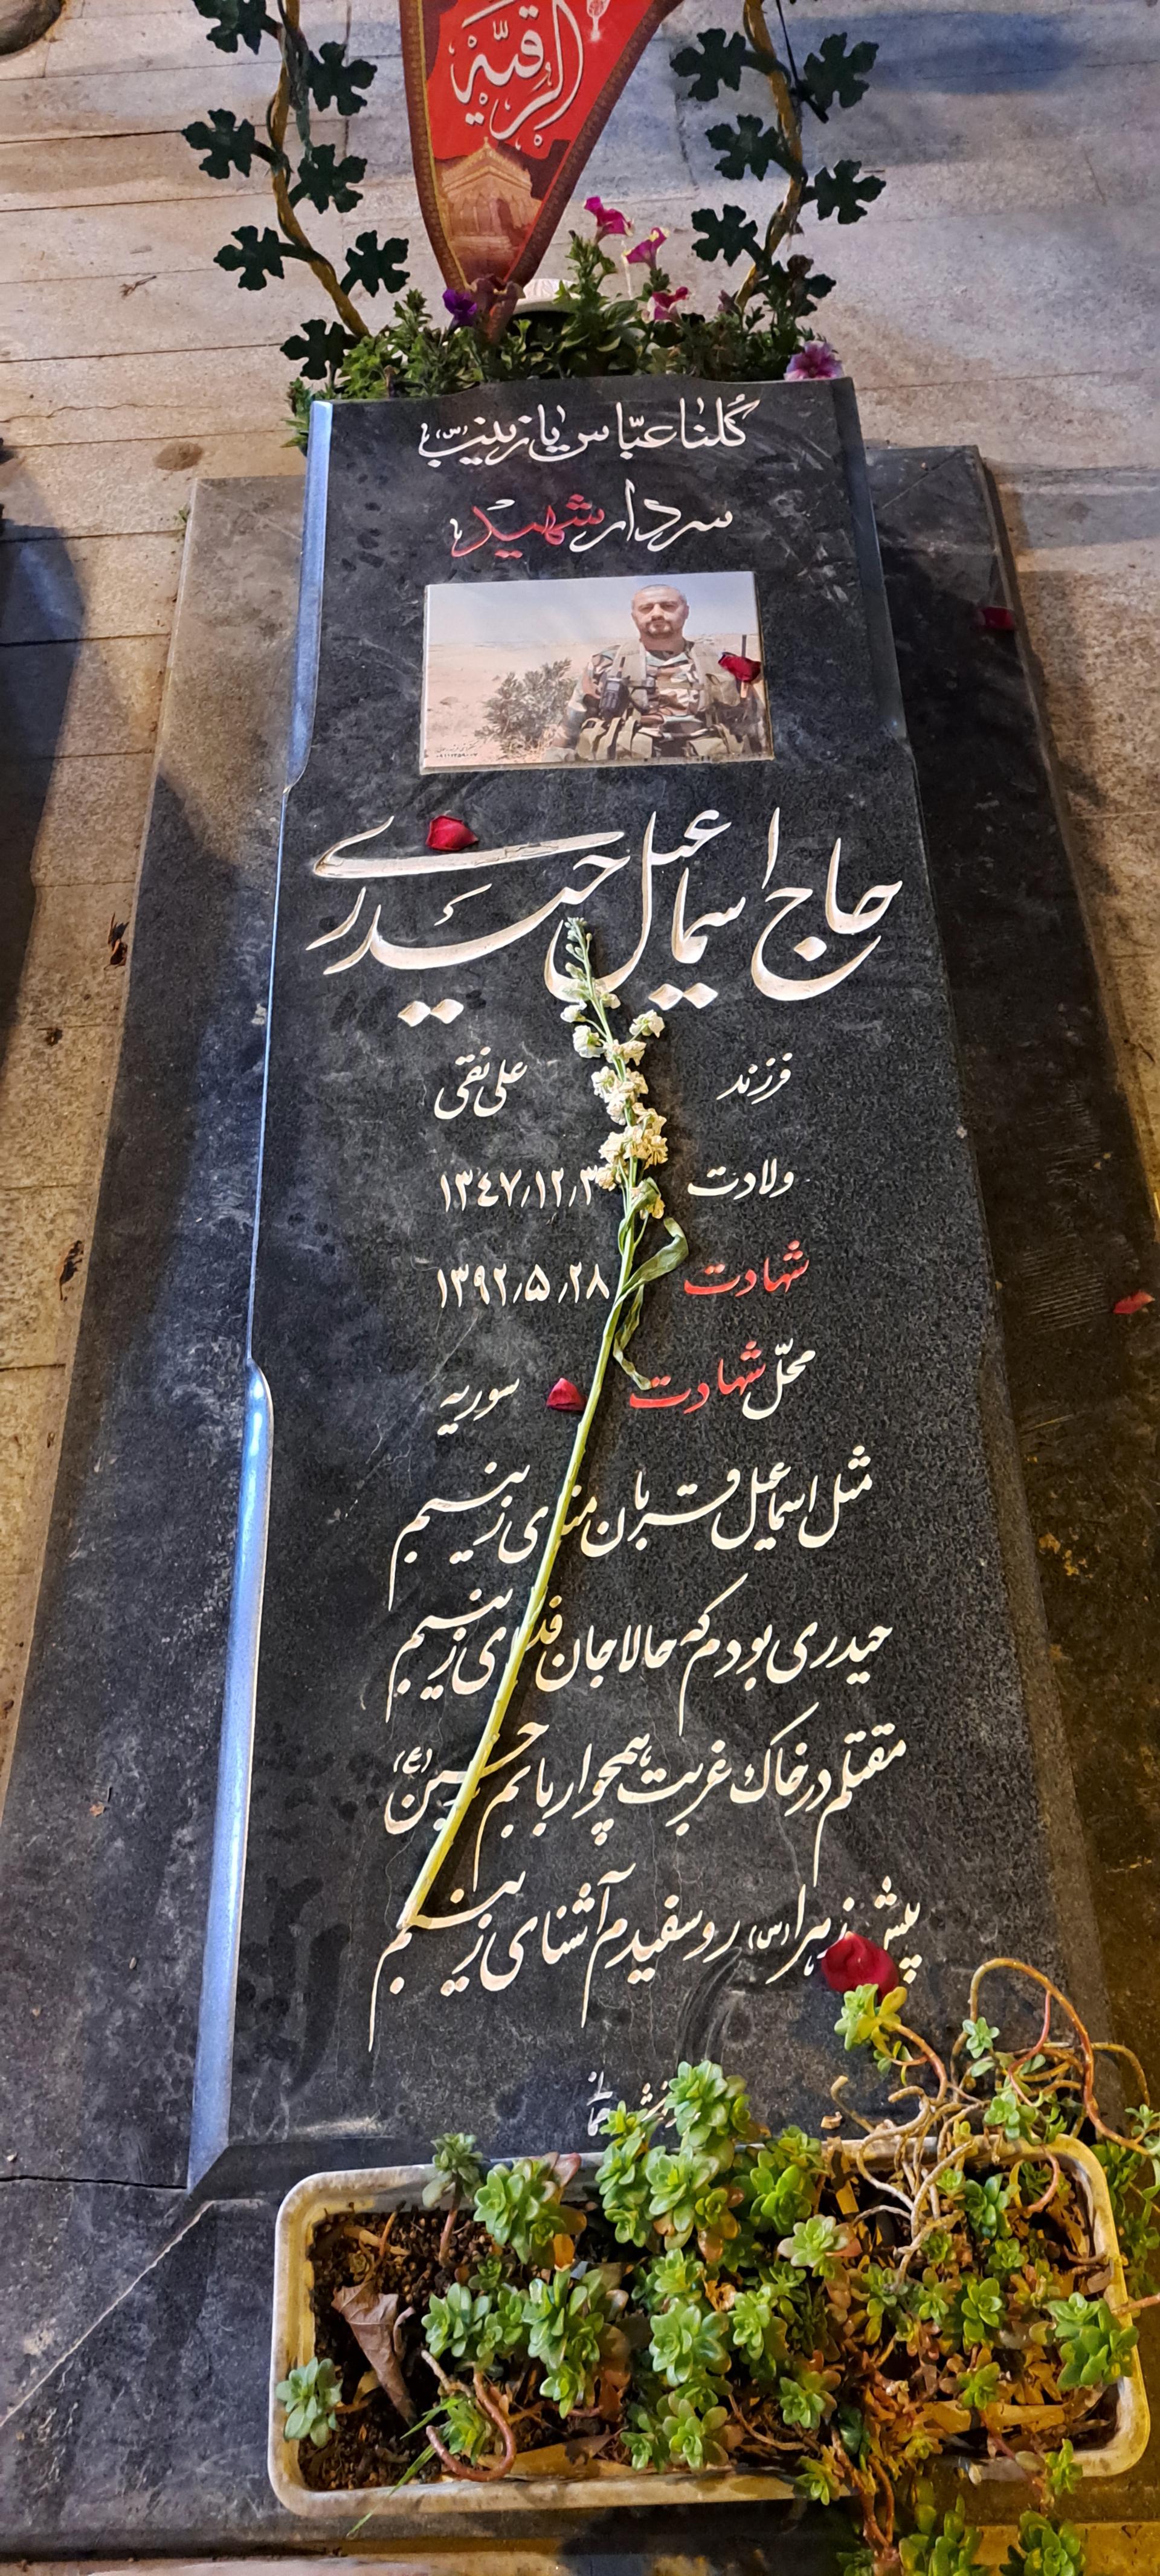 الرقیّة
کُلنا عبّاس یا زینب (س)
سردار شهید
حاج اسماعیل حیدری
فرزند علی نقی
ولادت ۱۳٤۷/۱۲/۳
شهادت ۱۳۹۲/۵/۲۸
محلّ شهادت سوریه
مثل اسماعیل قربان منای زینبیم
حیدری بودم که حالا جان فدای زینبیم
مقتلم در خاک غربت همچو اربابم حسین (ع)
پیش زهرا (س) رو سفیدم آشنای زینبیم